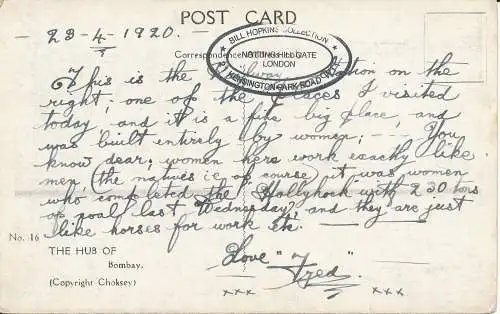 POST CARD
- 23-4-1920. -
Correspondence
BILL HOPKINS COLLECTION
NOTTINGHILL GATE
LONDON
KENSINGTON PARK ROAD
This is the Railway Station on the
right; one of the places I visited
today and it is a fine big place, and
was built entirely by women; - - You
know dear; women here work exactly like
men, (the natives i.e. of course) it was women
who completed the "Hollyhock with 230 tons
of coal last Wednesday", and they are just
like horses for work etc.
Love "Fred"
xxx xxx
No. 16
THE HUB OF
Bombay.
(Copyright Choksey)